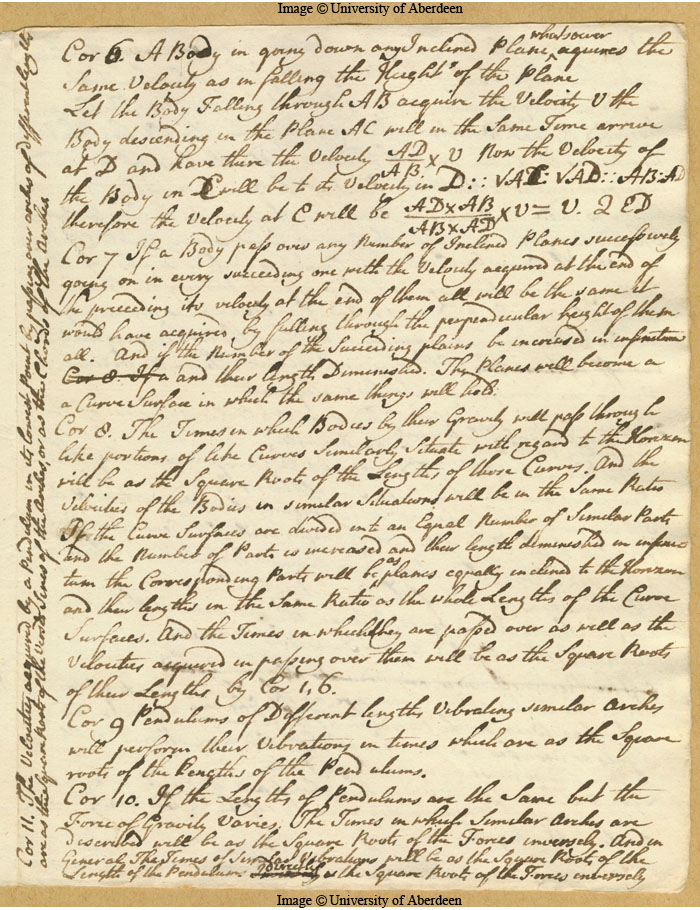 Image © University of Aberdeen
Cor 6. A Body in going down any Inclined Plane whatsoever aquires the
Same Velocity as in falling the Height of the Plane
Let the Body Falling through AB acquire the Velocity V the
Body descending in the Plane AC will in the Same Time arrive
at D and have there the Velocity AD/AB × V Now the Velocity of
the Body in C will be to its Velocity in D :: √AC : √AD :: AB : AD
therefore the Velocity at C will be AD×AB/AB×AD × V = V. Q ED
Cor 7 If a Body pass over any Number of Inclined Planes successively
going on in every succeeding one with the Velocity acquired at the end of
the preceeding its velocity at the end of them all will be the same it
would have acquired by falling through the perpendicular height of them
all. And if the Number of the Succeeding plains be increased in infinitum
Cor 8. If a and their length Diminished. The Planes will become a
a Curve Surface in which the same things will hold.
Cor 8. The Times in which Bodies by their Gravity will pass through
like portions of like Curves Similarly Situate with regard to the Horizon
will be as the Square Roots of the Lengths of those Curves. And the
Velocities of the Bodies in similar Situations will be in the Same Ratio
If the Curve Surfaces are divided into an Equal Number of Similar Parts
and the Number of Parts is increased and their length diminished in infini
tum the Corresponding Parts will be as planes equally inclined to the Horizon
and their lengths in the Same Ratio as the whole Lengths of the Curve
Surfaces. And the Times in which they are passed over as well as the
Velocities acquired in passing over them will be as the Square Roots
of their Lengths by Cor 1, 6.
Cor 9 Pendulums of Different lengths Vibrating similar arches
will perform their Vibrations in times which are as the Square
roots of the Lengths of the Pendulums.
Cor 10. If the Lengths of Pendulums are the Same but the
Force of Gravity Varies. The Times in which Similar Arches are
Described will be as the Square Roots of the Forces inversely. And in
General The Times of Similar Vibrations will be as the Square Roots of the
Length of the Pendulums directly & as the Square Roots of the Forces inversely
Cor 11. The Velocitys acquired by a Pendulum in its lowest point by passing over arches of different lengths
are as the square roots of the Versed Sines of the Arches or as the Chords of the Arches
Image © University of Aberdeen